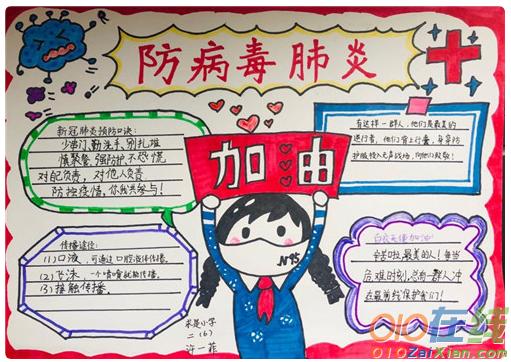 防病毒肺炎
新冠肺炎预防口诀:
少串门,勤洗手,别扎堆
慎聚餐,强防护,不恐慌
对自己负责,对他人负责
防控疫情,你我共参与!
加油
有这样一群人,他们是最美的
逆行者,他们背上行囊,身穿防
护服投入无声战场,向他们致敬!
传播途径:
(1)口液,可通过口腔液体传播。
(2)飞沫,一个喷嚏就能传播。
(3)接触传播。
N95
白衣天使加油!
你们是最美的人!每当
危难时刻,总有一群人冲
在最前线保护我们!
二(6)
许一菲
010在线
010ZaiXian.com